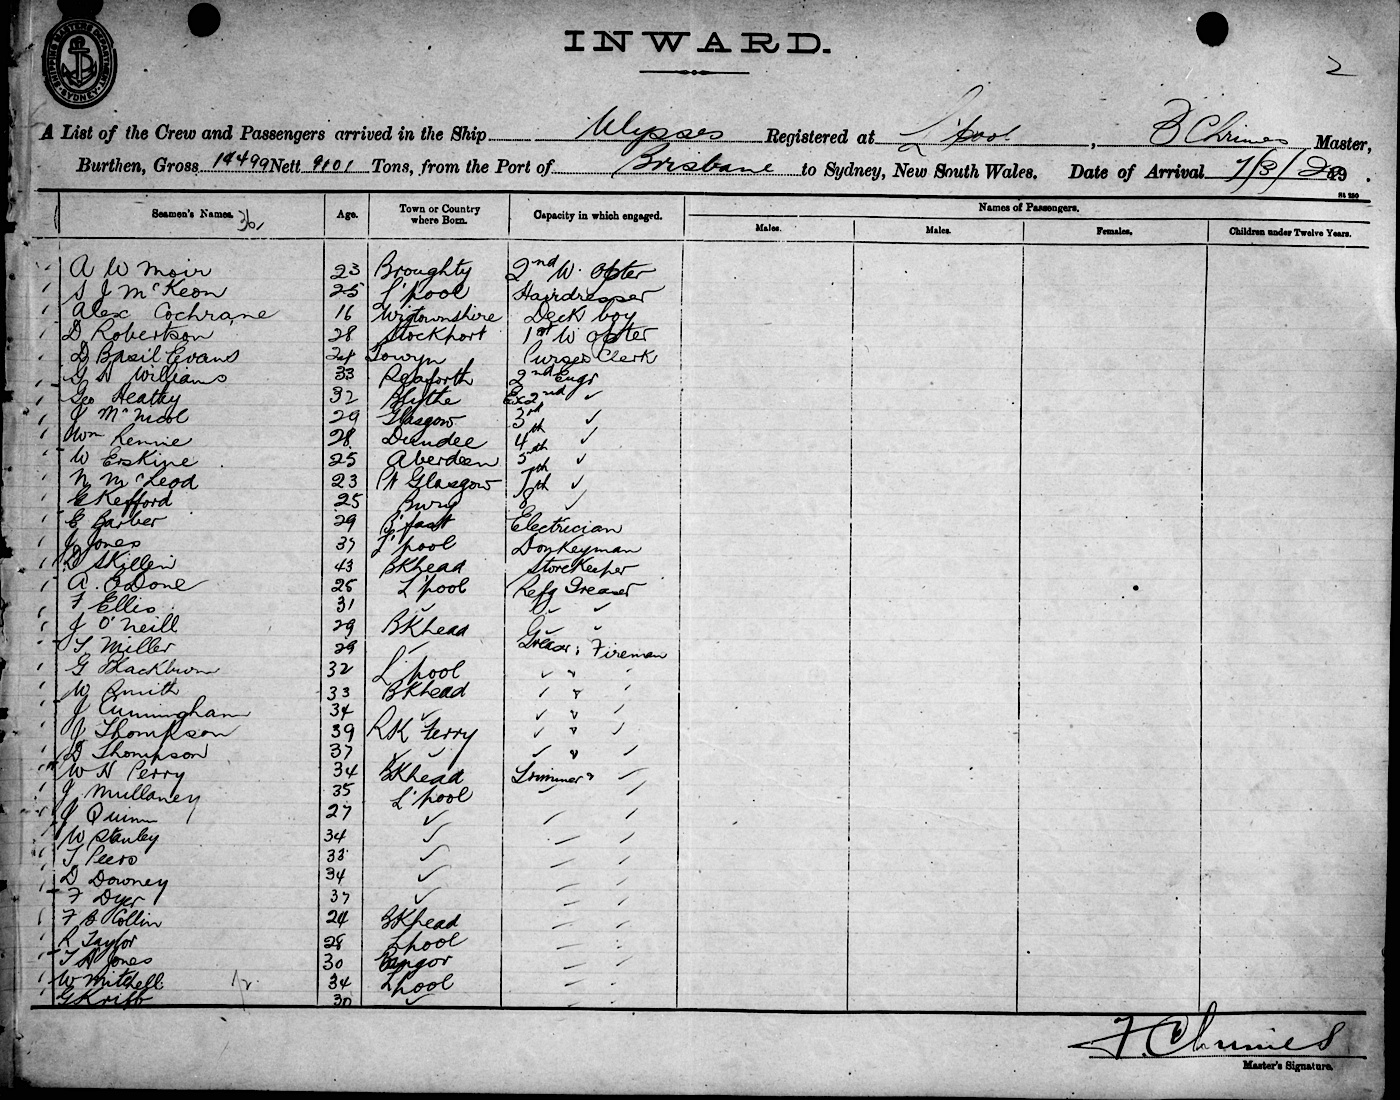 SHIPPING MASTERS DEPARTMENT SYDNEY
INWARD.
2
A List of the Crew and Passengers arrived in the Ship Ulysses Registered at L'pool, Chrimes Master,
Burthen, Gross 14499 Nett 9101 Tons, from the Port of Brisbane to Sydney, New South Wales. Date of Arrival 7/3/
Seamen's Names. 36 Age. Town or Country where Born. Capacity in which engaged. Names of Passengers.
Males. Males. Females. Children under Twelve Years.
A W Moir 23 Broughty 2nd W. Opter
S J McKeon 25 L'pool Hairdresser
Alex Cochrane 16 Wigtownshire Deck boy
D Robertson 28 Stockport 1st W Opter
D Basil Evans 24 Towyn Pursers Clerk
G H Williams 33 Seaforth 2nd Engr
Geo Heatley 32 Blythe Ex 2nd ✓
J McNicol 29 Glasgow 3rd ✓
Wm Rennie 28 Dundee 4th ✓
W Erskine 25 Aberdeen 5th ✓
N McLeod 23 Pt Glasgow 7th ✓
E Kefford 25 Bury 8 ✓
E Barber 29 B'fast Electrician
J Jones 37 L'pool Donkeyman
D Skillen 43 BKhead Storekeeper
A. E Done 25 L'pool Refg Greaser
F Ellis 31 ✓ ✓ ✓
J O'Neill 29 BKhead ✓ ✓
T Miller 29 ✓ Greaser, Fireman
G Blackburn 32 L'pool ✓ " ✓
W Smith 33 BKhead ✓ " ✓
J Cunningham 34 ✓ ✓ " ✓
J Thompson 39 RK Ferry ✓ " ✓
D Thompson 37 ✓ ✓ ✓ " ✓
W H Perry 34 BKhead Trimmer ✓
J Mullaney 35 L'pool ✓ ✓
J Quinn 27 ✓ ✓ ✓
W Stanley 34 ✓ ✓ ✓
T Peers 33 ✓ ✓ ✓
D Downey 34 ✓ ✓ ✓
F Dyer 37 ✓ ✓ ✓
F B Collin 24 BKhead
R Taylor 28 L'pool
T H Jones 30 Bangor
W Mitchell 34 L'pool
G Kribb 30 ✓
F. Chrimes
Master's Signature.